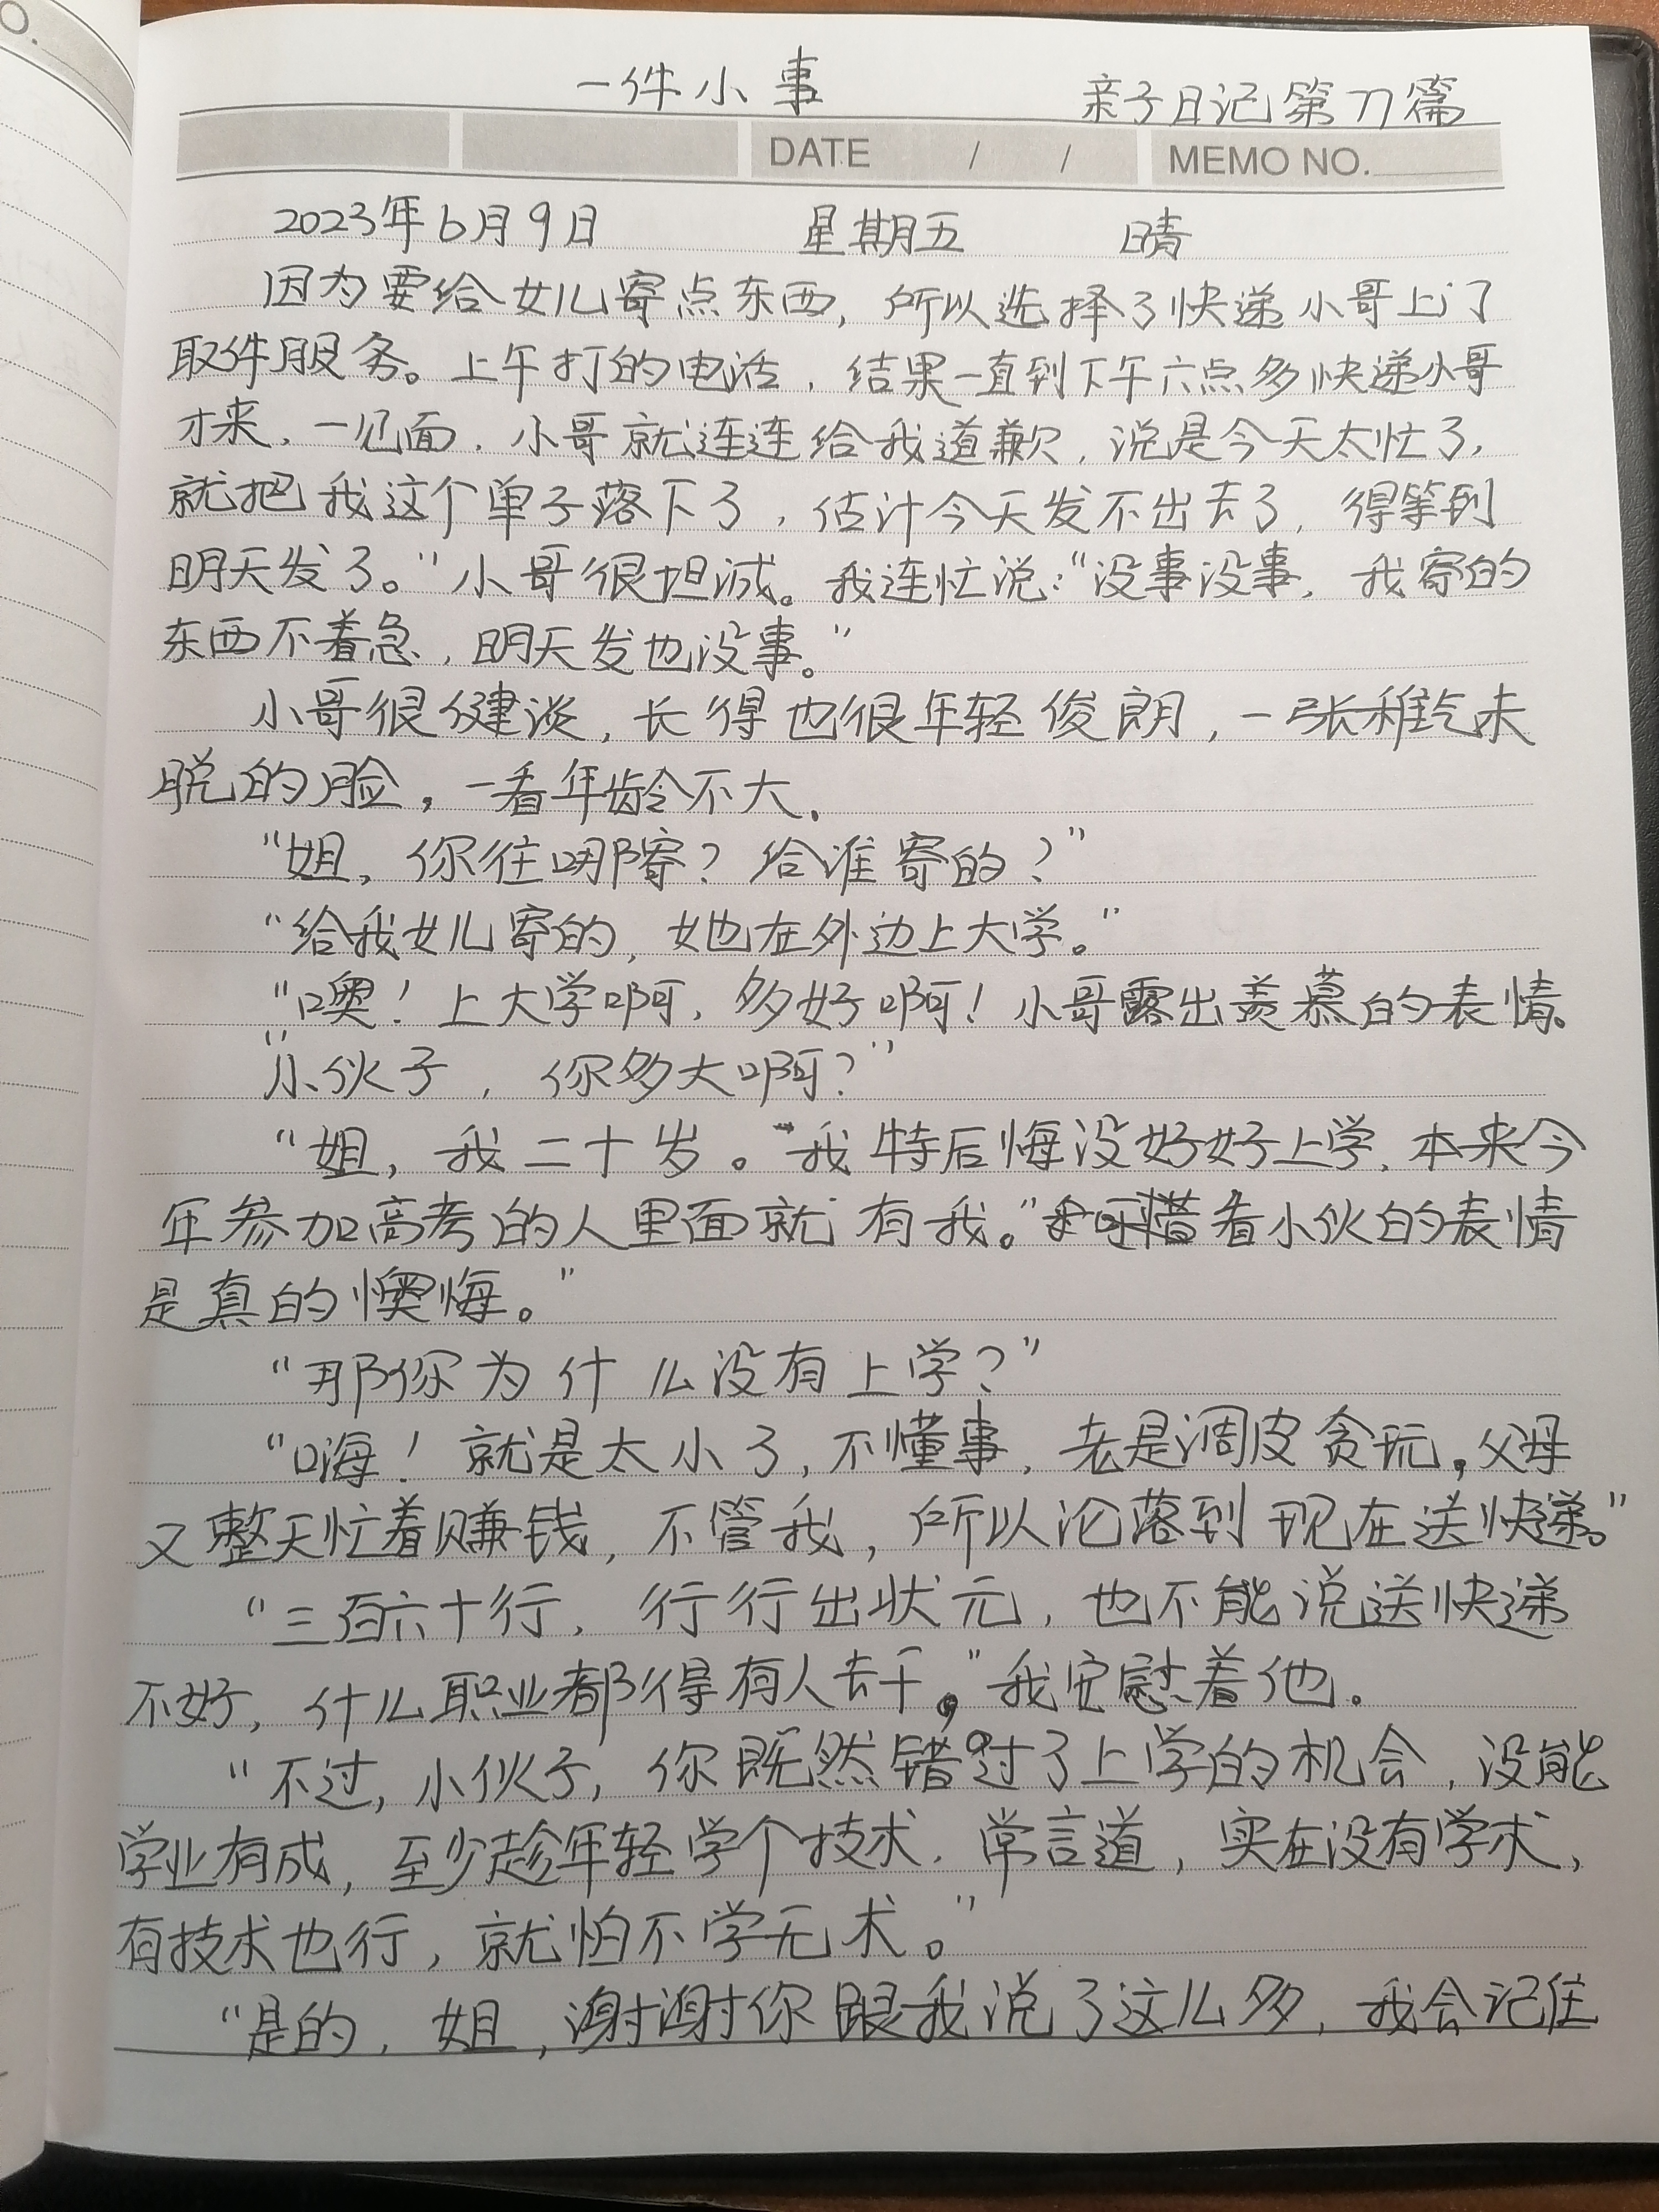 O.
一件小事 亲子日记第77篇
DATE / / MEMO NO.
2023年6月9日 星期五 晴
因为要给女儿寄点东西，所以选择了快递小哥上门
取件服务。上午打的电话，结果一直到下午六点多快递小哥
才来，一见面，小哥就连连给我道歉，说是今天太忙了，
就把我这个单子落下了，估计今天发不出去了，得等到
明天发了。"小哥很坦诚。我连忙说："没事没事，我寄的
东西不着急，明天发也没事。"
小哥很健谈，长得也很年轻俊朗，一张稚气未
脱的脸，一看年龄不大。
"姐，你往哪寄？给谁寄的？"
"给我女儿寄的，她在外边上大学。"
"噢！上大学啊，多好啊！小哥露出羡慕的表情。
"小伙子，你多大啊？"
"姐，我二十岁。我特后悔没好好上学，本来今
年参加高考的人里面就有我。"看小伙的表情
是真的懊悔。"
"那你为什么没有上学？"
"嗨！就是太小了，不懂事，老是调皮贪玩，父母
又整天忙着赚钱，不管我，所以沦落到现在送快递。"
"三百六十行，行行出状元，也不能说送快递
不好，什么职业都得有人去干，"我安慰着他。
"不过，小伙子，你既然错过了上学的机会，没能
学业有成，至少趁年轻学个技术，常言道，实在没有学术，
有技术也行，就怕不学无术。"
"是的，姐，谢谢你跟我说了这么多，我会记住